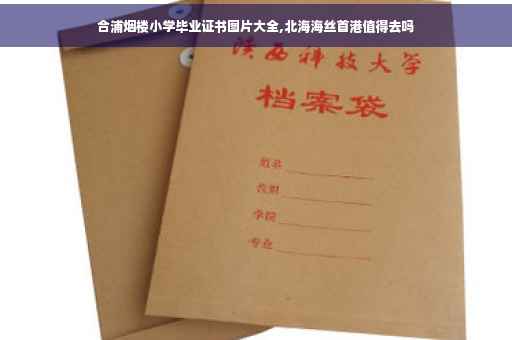 合浦烟楼小学毕业证书图片大全,北海海丝首港值得去吗
陕西科技大学
档案袋
姓名
学院
专业